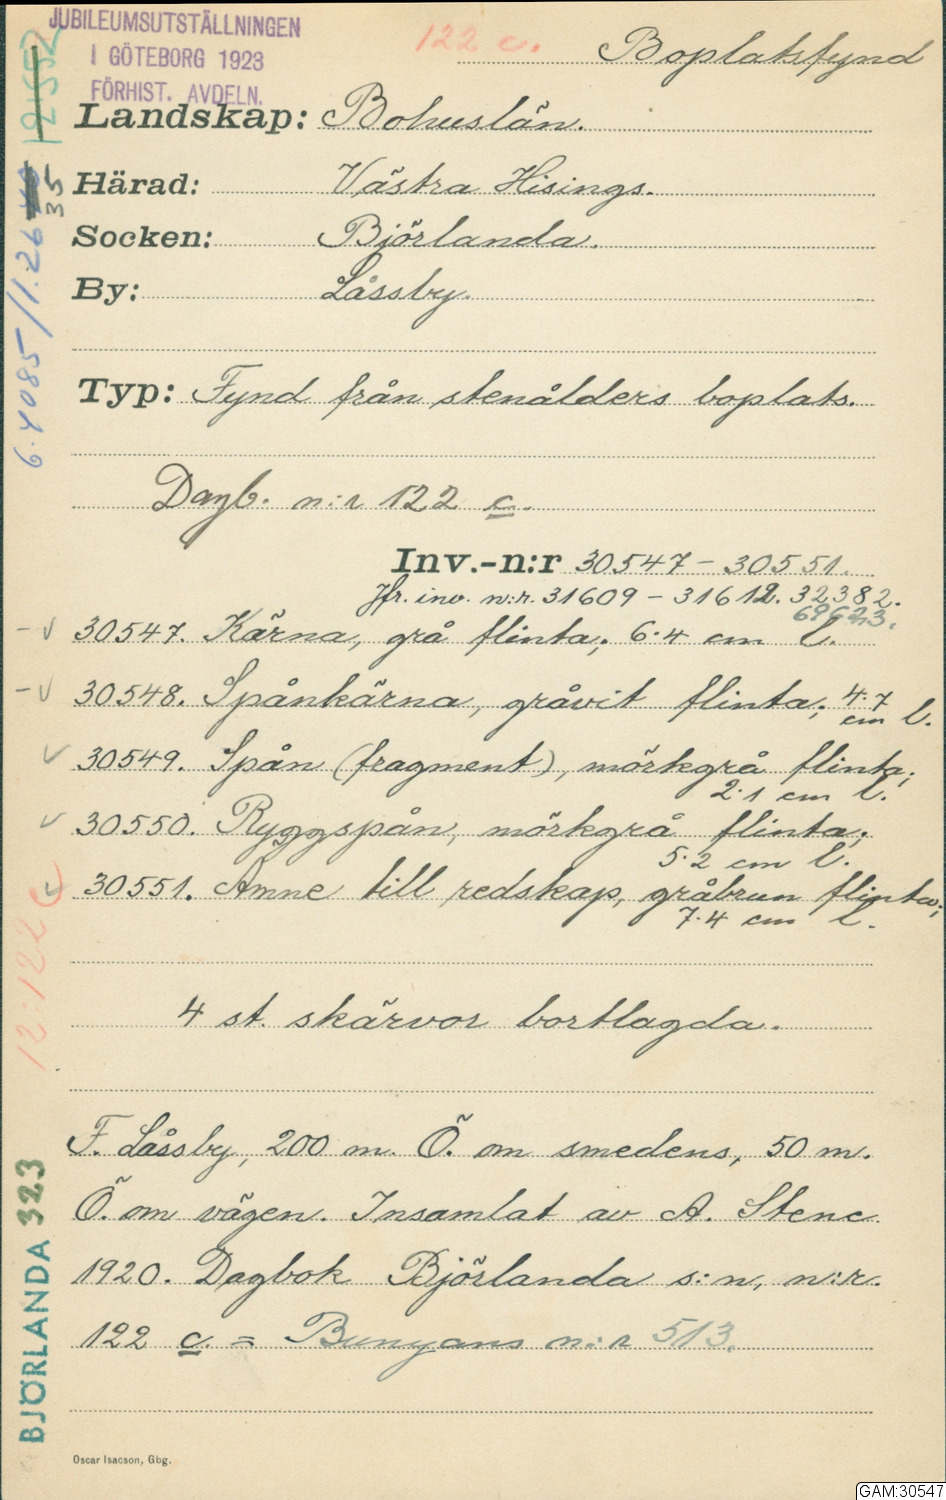 JUBILEUMSUTSTÄLLNINGEN
I GÖTEBORG 1923
FÖRHIST. AVDELN.
122 c.
Boplatsfynd
Landskap: Bohuslän.
Härad: Västra Hisings.
Socken: Björlanda.
By: Låssby.
Typ: Fynd från stenålders boplats.
Dagb. n:r 122 c.
Inv.-n:r 30547 – 30551.
Jfr. inv. n:r. 31609 – 31612. 32382.
69623.
30547. Kärna, grå flinta; 6.4 cm l.
30548. Spånkärna, gråvit flinta; 4.7
cm l.
30549. Spån (fragment), mörkgrå flinta;
2.1 cm l.
30550. Ryggspån, mörkgrå flinta;
5.2 cm l.
30551. Ämne till redskap, gråbrun flinta;
7.4 cm l.
4 st. skärvor bortlagda.
F. Låssby, 200 m. Ö. om smedens, 50 m.
Ö. om vägen. Insamlat av A. Stene
1920. Dagbok Björlanda s:n, n:r.
122 c. = Bunyans n:r 513.
Oscar Isacson, Gbg.
12552
35
6.4085/1.26
12:122 c
BJÖRLANDA 323
GAM:30547